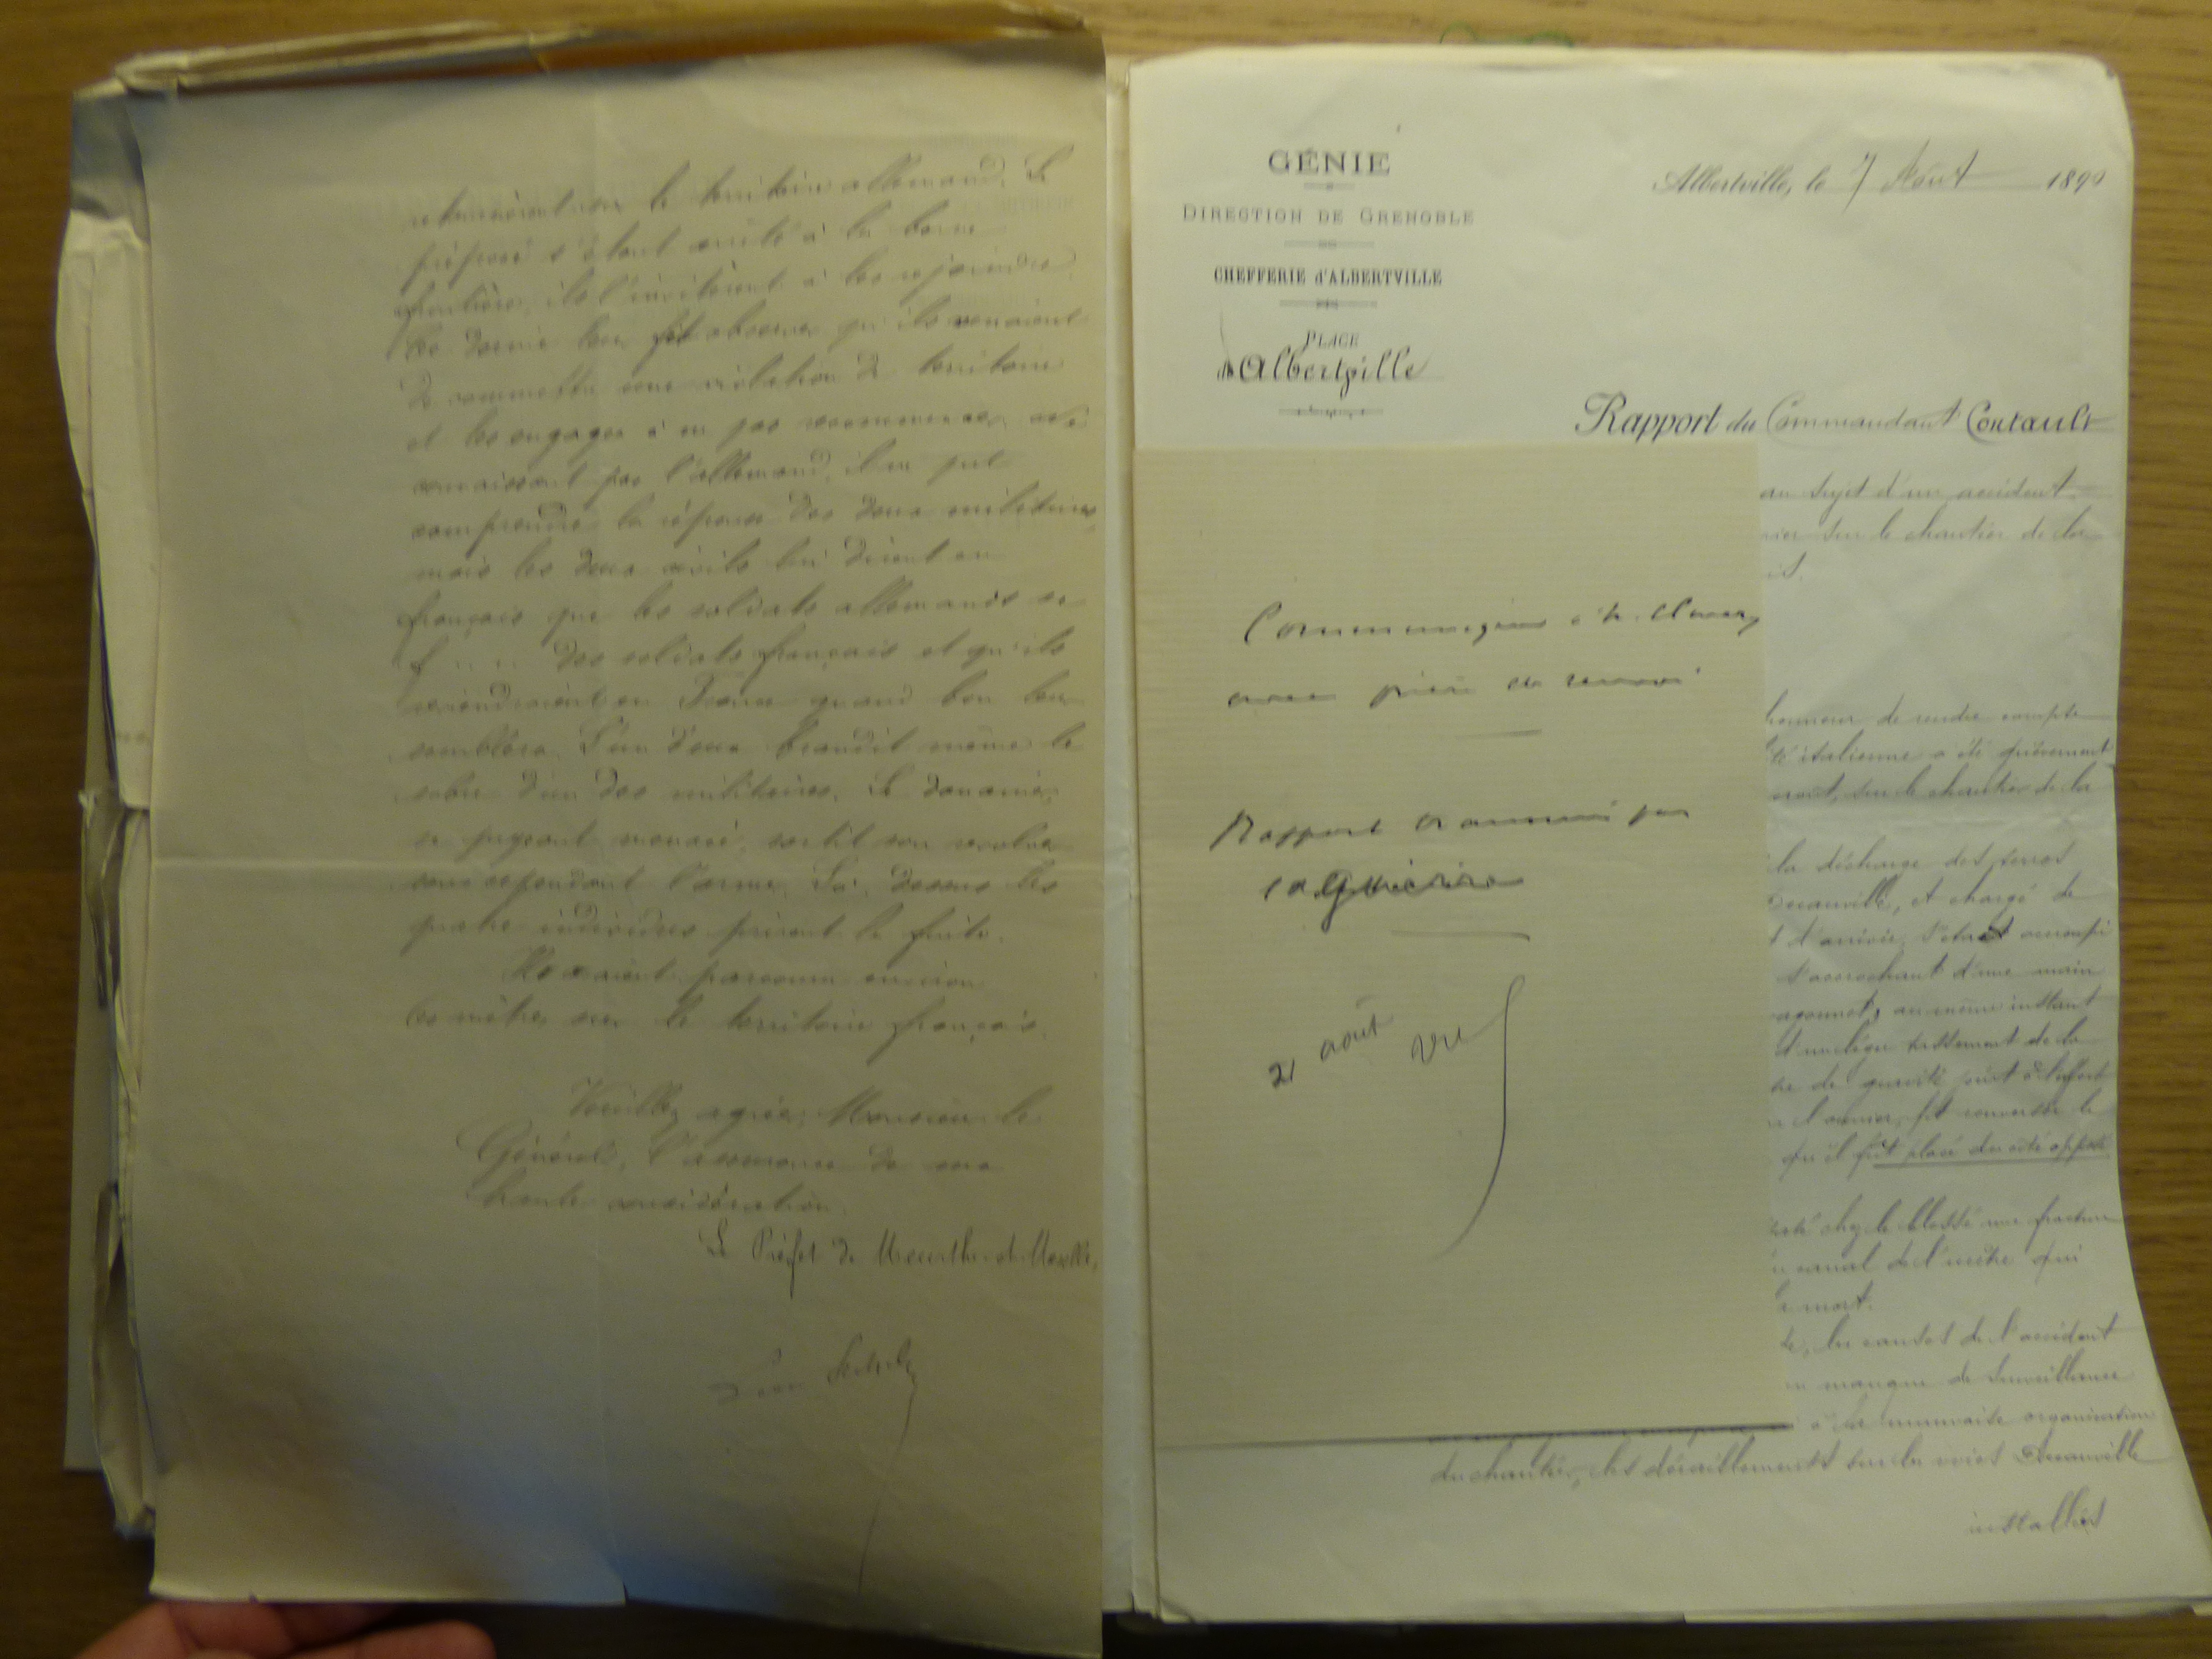 retournèrent sur le territoire allemand. Le
préposé s'étant arrêté à la borne
frontière, ils l'invitèrent à les rejoindre.
Ce dernier leur fit observer qu'ils venaient
de commettre une violation de territoire
et les engagea à ne pas recommencer. Ne
connaissant pas l'allemand, il ne put
comprendre la réponse des deux militaires,
mais les deux civils lui dirent en
français que les soldats allemands se
f..... des soldats français et qu'ils
reviendraient en France quand bon leur
semblera. L'un d'eux brandit même le
sabre d'un des militaires. Le douanier,
se jugeant menacé, sortit son revolver
sans cependant l'armer. Là-dessus les
quatre individus prirent la fuite.
Ils avaient parcouru environ
mètres sur le territoire français.
Veuillez agréer, Monsieur le
Général, l'assurance de ma
haute considération.
Le Préfet de Meurthe-et-Moselle,
GÉNIE
DIRECTION DE GRENOBLE
CHEFFERIE d'ALBERTVILLE
PLACE
d'Albertville
Albertville, le 7 Août 1890
Rapport du Commandant Coutault
au sujet d'un accident
sur le chantier de la
Communiqué à M.
avec prière de renvoi
Rapport examiné par
la Guerre
21 août
honneur de rendre compte
italienne a été grièvement
sur le chantier de la
la décharge des terres
Decauville, et chargé de
d'arrivée, s'était accroupi
s'accrochant d'une main
au même instant
tassement de la
de gravité joint à l'effort
l'ouvrier, fit renverser le
qu'il fût placé du côté opposé
chez le blessé une fracture
canal de l'urètre qui
mort.
les causes de l'accident
manque de surveillance
à la mauvaise organisation
du chantier, les déraillements sur les voies Decauville
installées